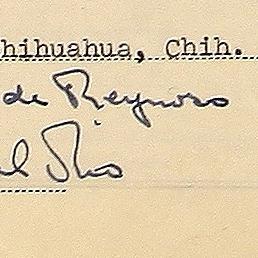 hihuahua, Chih.
de Reynoso
Rio